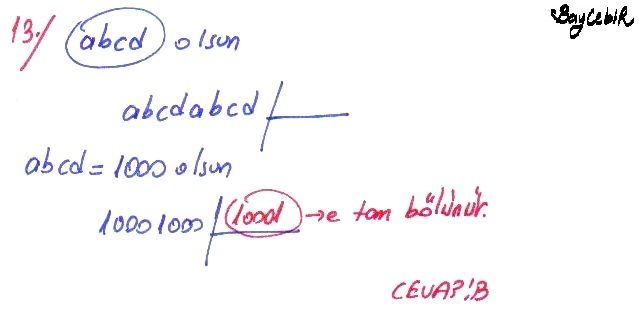 BayCebiR
13./ abcd olsun
abcdabcd
abcd = 1000 olsun
10001000 10001 → e tam bölünür.
CEVAP: B